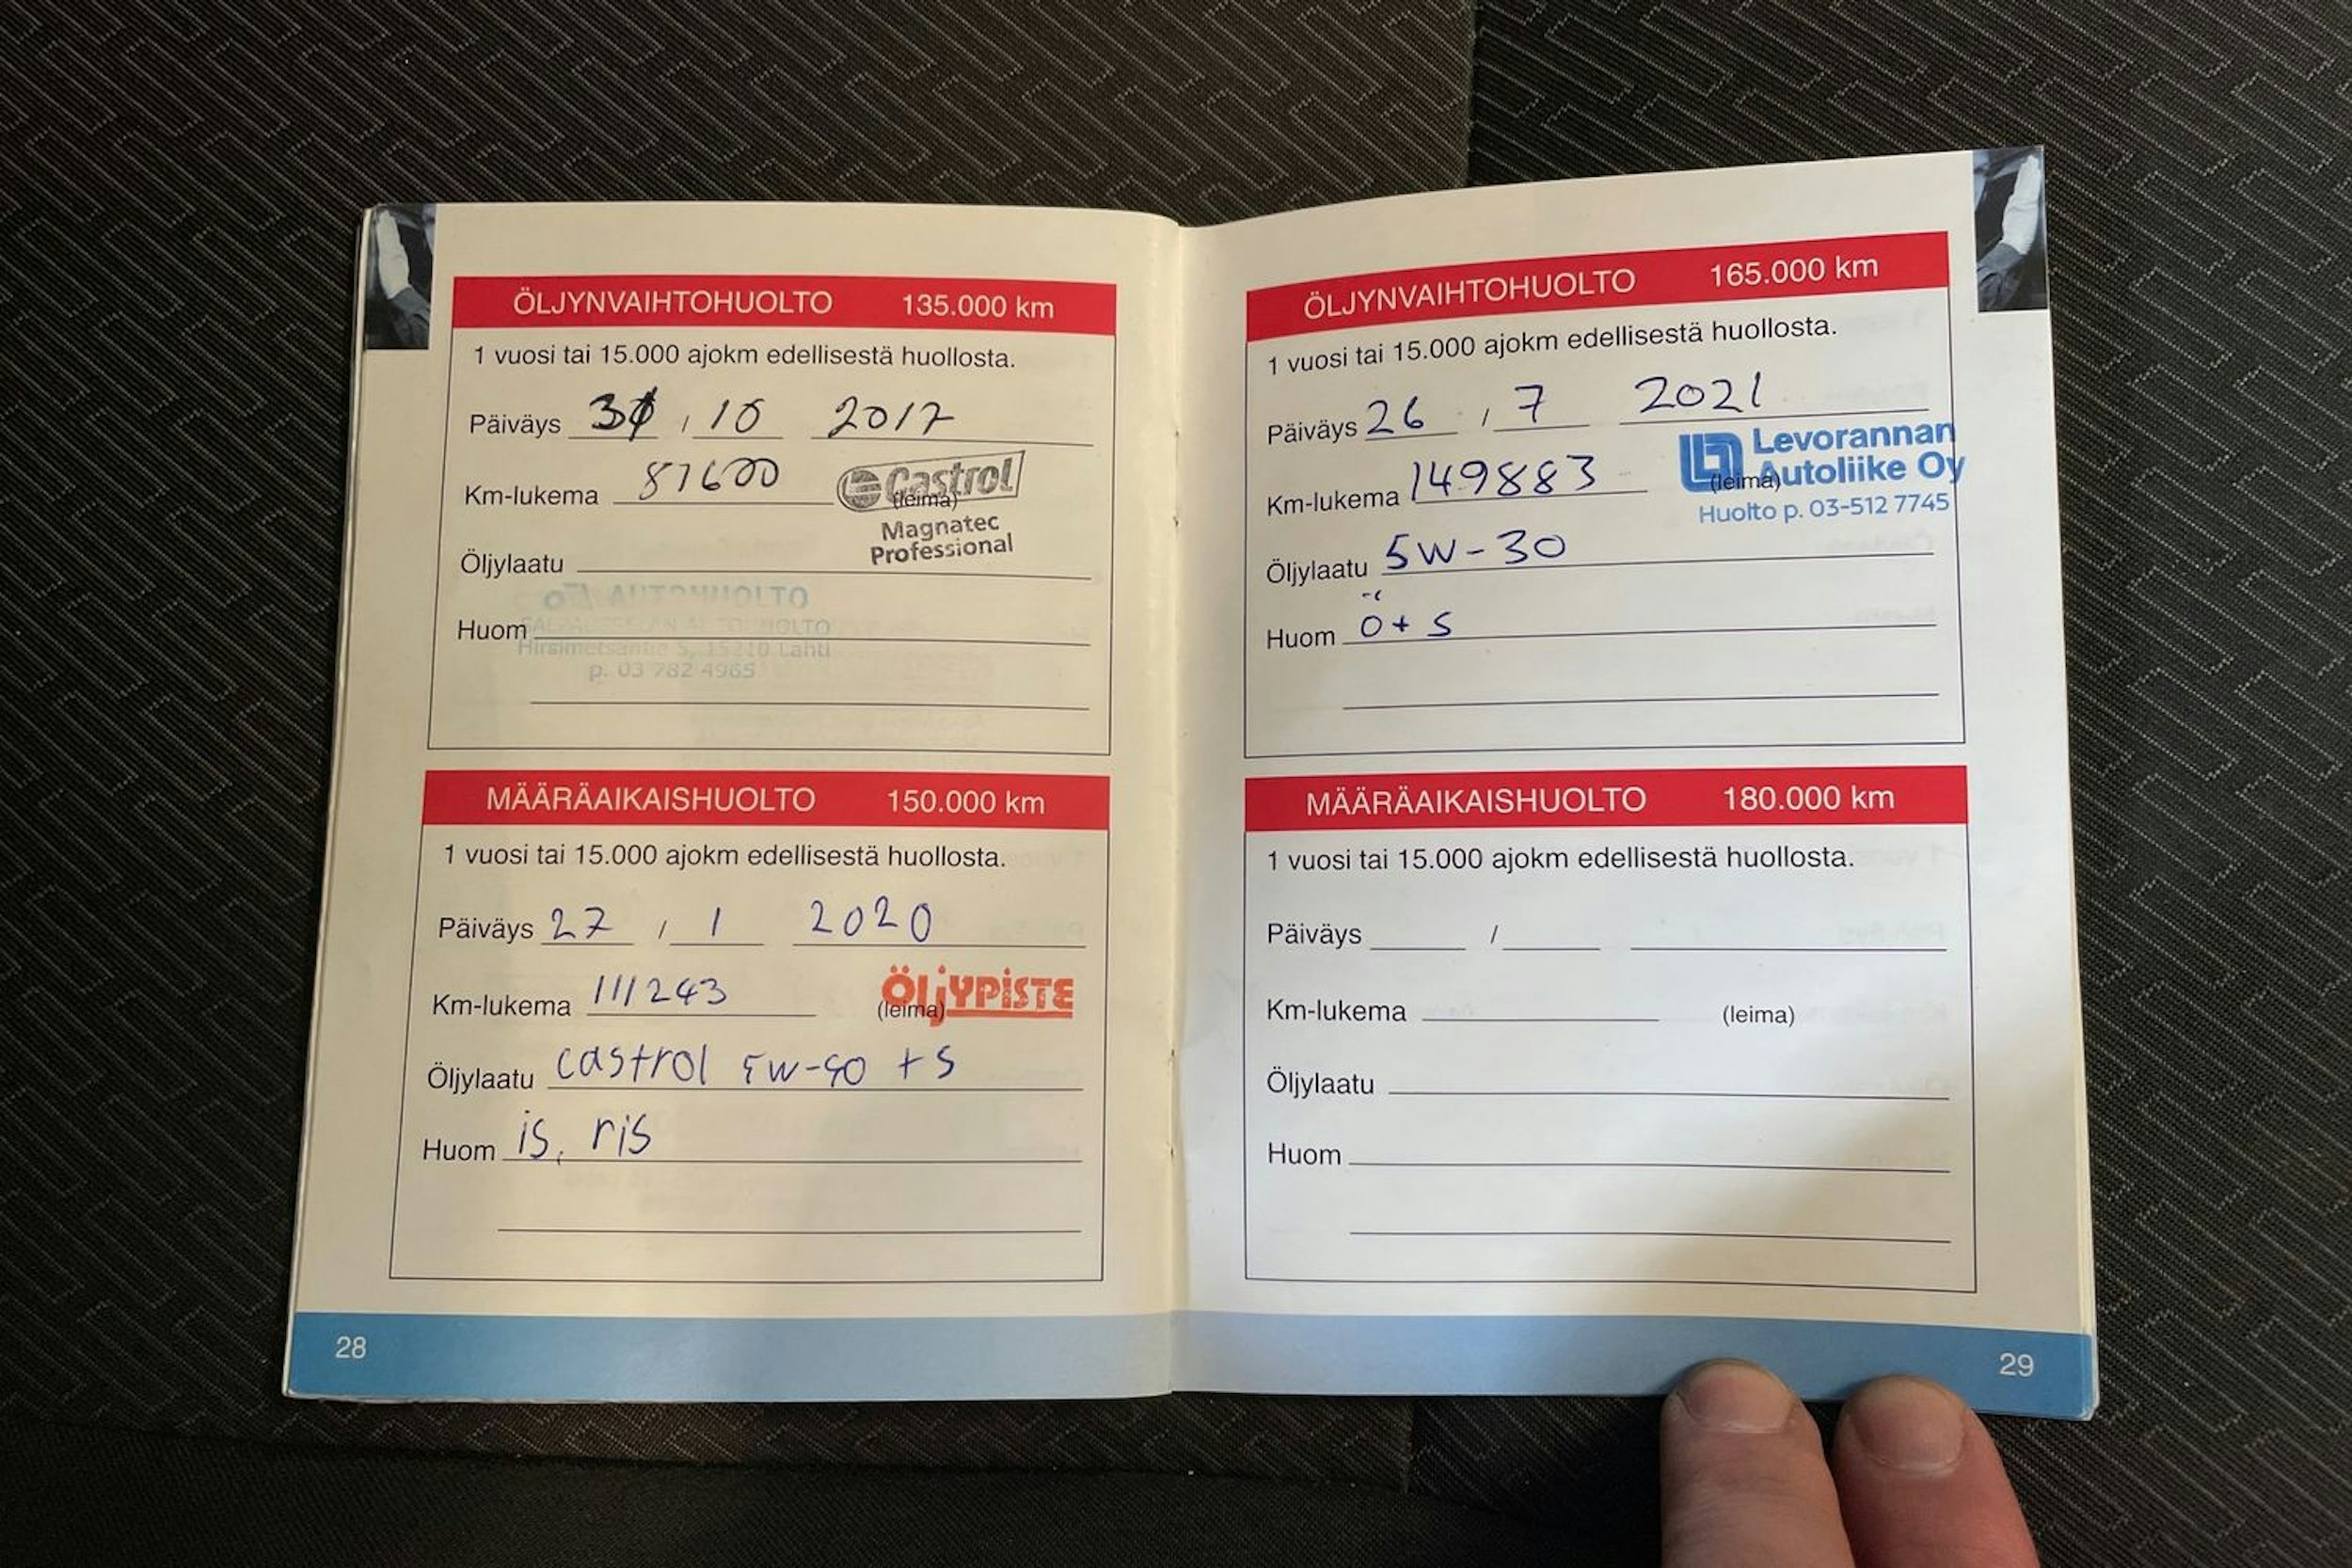 ÖLJYNVAIHTOHUOLTO 135.000 km
1 vuosi tai 15.000 ajokm edellisestä huollosta.
Päiväys / 10 2017
Km-lukema 87600 (leima)
Castrol
Magnatec
Professional
Öljylaatu
AUTOHUOLTO
Huom
Hirsimetsäntie 5, 15210 Lahti
p. 03 782 4965
MÄÄRÄAIKAISHUOLTO 150.000 km
1 vuosi tai 15.000 ajokm edellisestä huollosta.
Päiväys 27 / 1 2020
Km-lukema 111243 (leima)
ÖLJYPISTE
Öljylaatu castrol 5w-40 + s
Huom is, ris
28
ÖLJYNVAIHTOHUOLTO 165.000 km
1 vuosi tai 15.000 ajokm edellisestä huollosta.
Päiväys 26 / 7 2021
Levorannan
Autoliike Oy
Huolto p. 03-512 7745
Km-lukema 149883 (leima)
Öljylaatu 5W-30
Huom ö+s
MÄÄRÄAIKAISHUOLTO 180.000 km
1 vuosi tai 15.000 ajokm edellisestä huollosta.
Päiväys /
Km-lukema (leima)
Öljylaatu
Huom
29